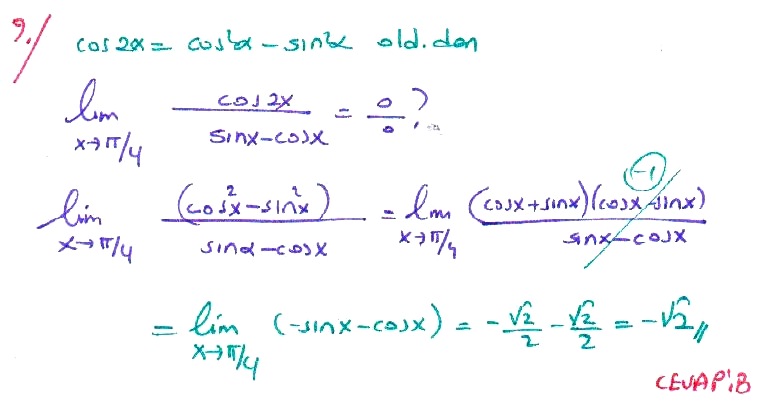 9./ cos2α = cos²α - sin²α old.dan
lim x→π/4 cos2x / sinx-cosx = 0/0 ?
lim x→π/4 (cos²x-sin²x) / sinα-cosx = lim x→π/4 (cosx+sinx)(cosx-sinx) / sinx-cosx (-1)
= lim x→π/4 (-sinx-cosx) = -√2/2 - √2/2 = -√2 //
CEVAP:B